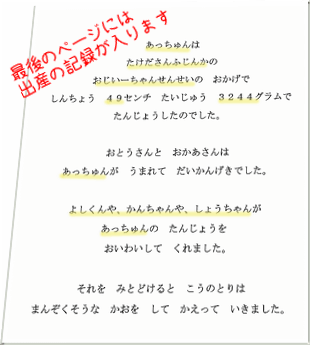 最後のページには
出産の記録が入ります
あっちゅんは
たけださんふじんかの
おじいーちゃんせんせいの おかげで
しんちょう 49センチ たいじゅう 3244グラムで
たんじょうしたのでした。
おとうさんと おかあさんは
あっちゅんが うまれて だいかんげきでした。
よしくんや、かんちゃんや、しょうちゃんが
あっちゅんの たんじょうを
おいわいして くれました。
それを みとどけると こうのとりは
まんぞくそうな かおを して かえって いきました。